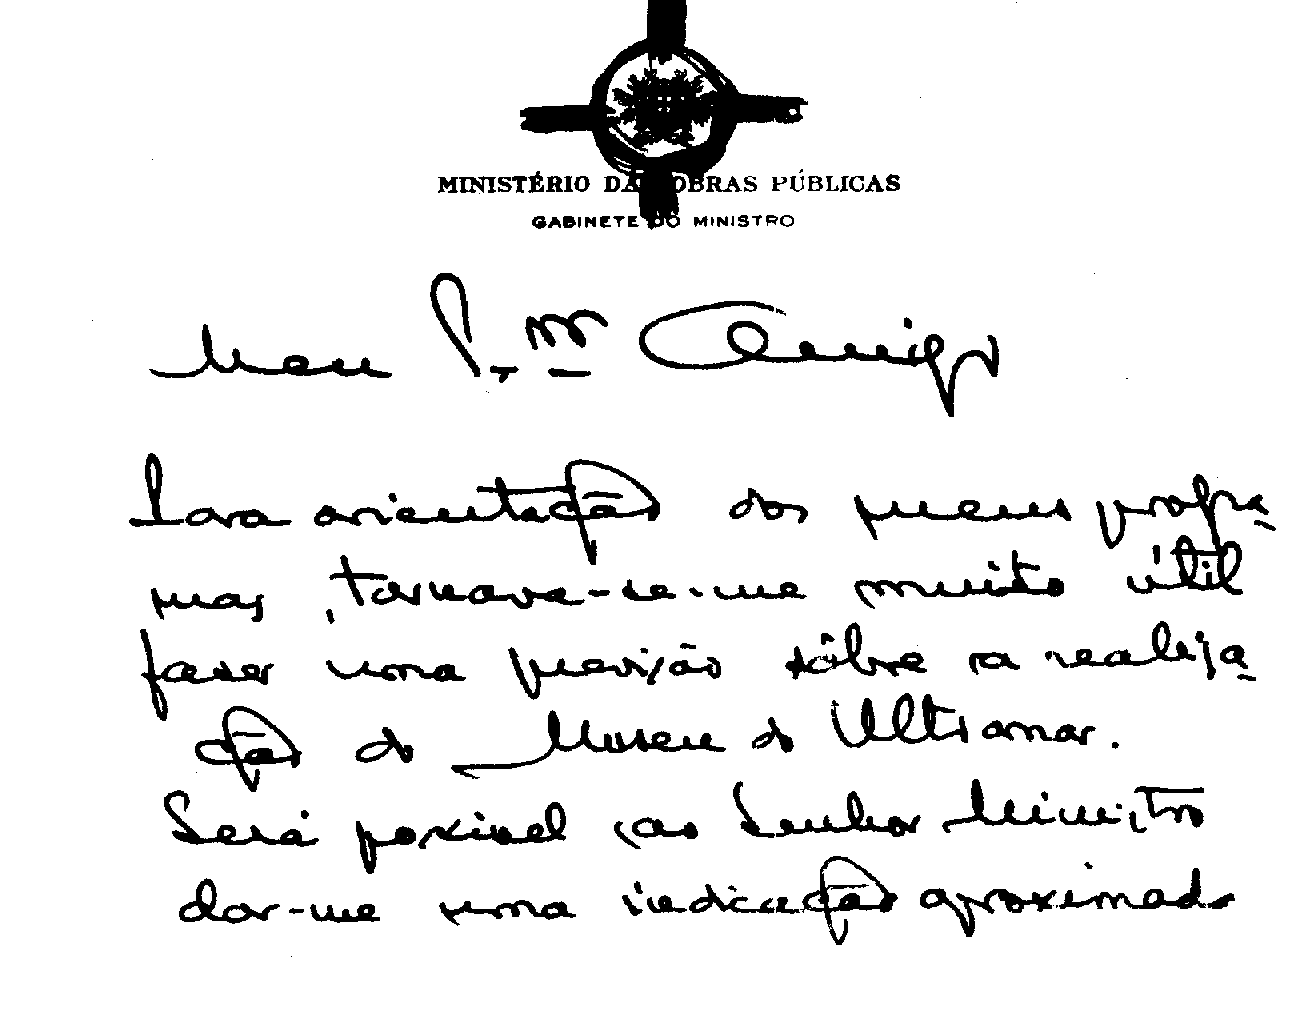 MINISTÉRIO DAS OBRAS PÚBLICAS
GABINETE DO MINISTRO
Meu P.^m Amigo
Para orientação dos meus progra-
mas, tornava-se-me muito útil
fazer uma previsão sôbre a realiza-
ção do Museu do Ultramar.
Será possivel ao Senhor Ministro
dar-me uma indicação aproximada